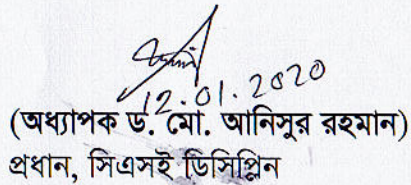 12.01.2020
(অধ্যাপক ড. মো. আনিসুর রহমান)
প্রধান, সিএসই ডিসিপ্লিন